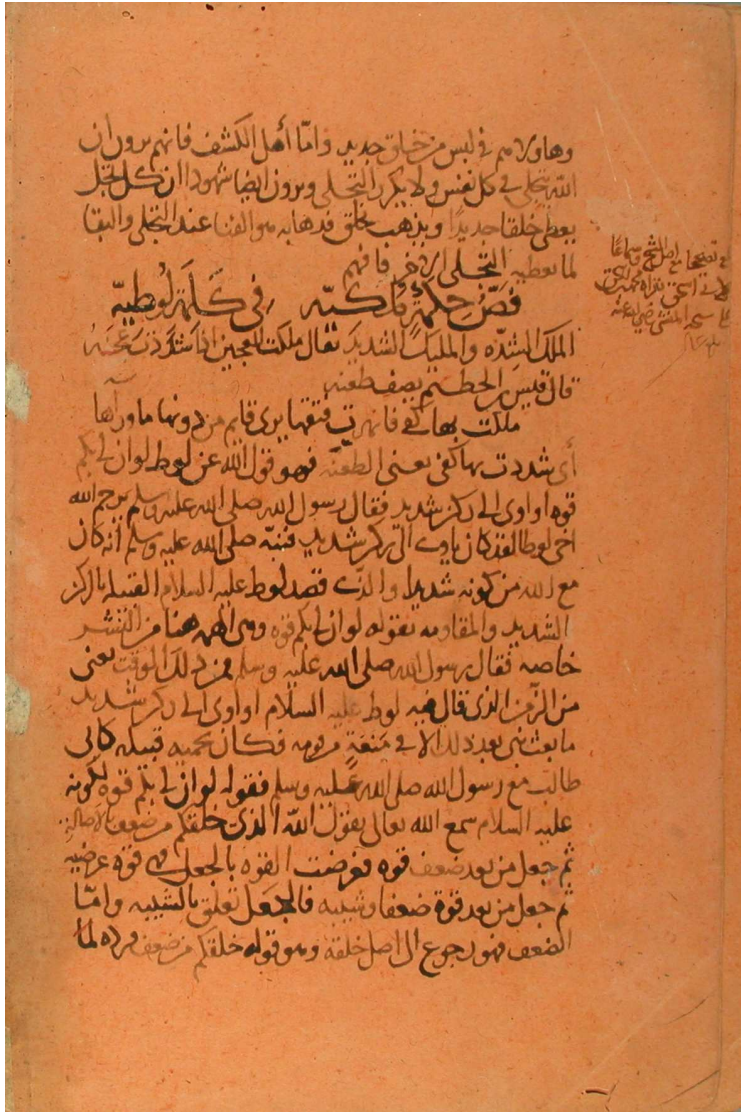 وهاولاهم في لبس من خلق جديد واما أهل الكشف فانهم يرون ان
الله تجلى في كل نفس ولا يكرر التجلى ويرون ايضا شهودا ان كل تجل
يعطى خلقا جديدا ويذهب بخلق فذهابه هو الفنا عند التجلى والبقا
لما يعطيه التجلى الاخر فافهم
فصّ حكمة ملكيّه في كلمة لوطيّه
الملك الشدّه والمليك الشديد يقال ملكت العجين اذا شددت عجنه
قال قيس بن الحطيم يصف طعنه
ملكت بها كفي فانهرت فتقها يرى قايم من دونها ما وراها
أى شددت بها كفى يعنى الطعنه فهو قول الله عن لوط لو ان لى بكم
قوه او اوى الى ركن شديد فقال رسول الله صلى الله عليه وسلم يرحم الله
اخى لوطا لقد كان ياوى الى ركن شديد فنبّه صلى الله عليه وسلم أنه كان
مع الله من كونه شديدا والذى قصد لوط عليه السلام القبيله بالركن
الشديد والمقاومه بقوله لو ان لى بكم قوه وهى الهمه هنا من البشر
خاصه فقال رسول الله صلى الله عليه وسلم فمن ذلك الوقت يعنى
من الزمن الذى قال فيه لوط عليه السلام او اوى الى ركن شديد
ما بعث نبى بعد ذلك الا في منعة من قومه فكان يحميه قبيله كابى
طالب مع رسول الله صلى الله عليه وسلم فقوله لو ان لى بكم قوه لكونه
عليه السلام سمع الله تعالى يقول الله الذى خلقكم من ضعف بالاصالة
ثم جعل من بعد ضعف قوه فعرضت القوه بالجعل فهى قوه عرضيه
ثم جعل من بعد قوة ضعفا وشيبه فالجعل تعلق بالشيبه وامّا
الضعف فهو رجوع الى اصل خلقة وهو قوله خلقكم من ضعف فرده لما